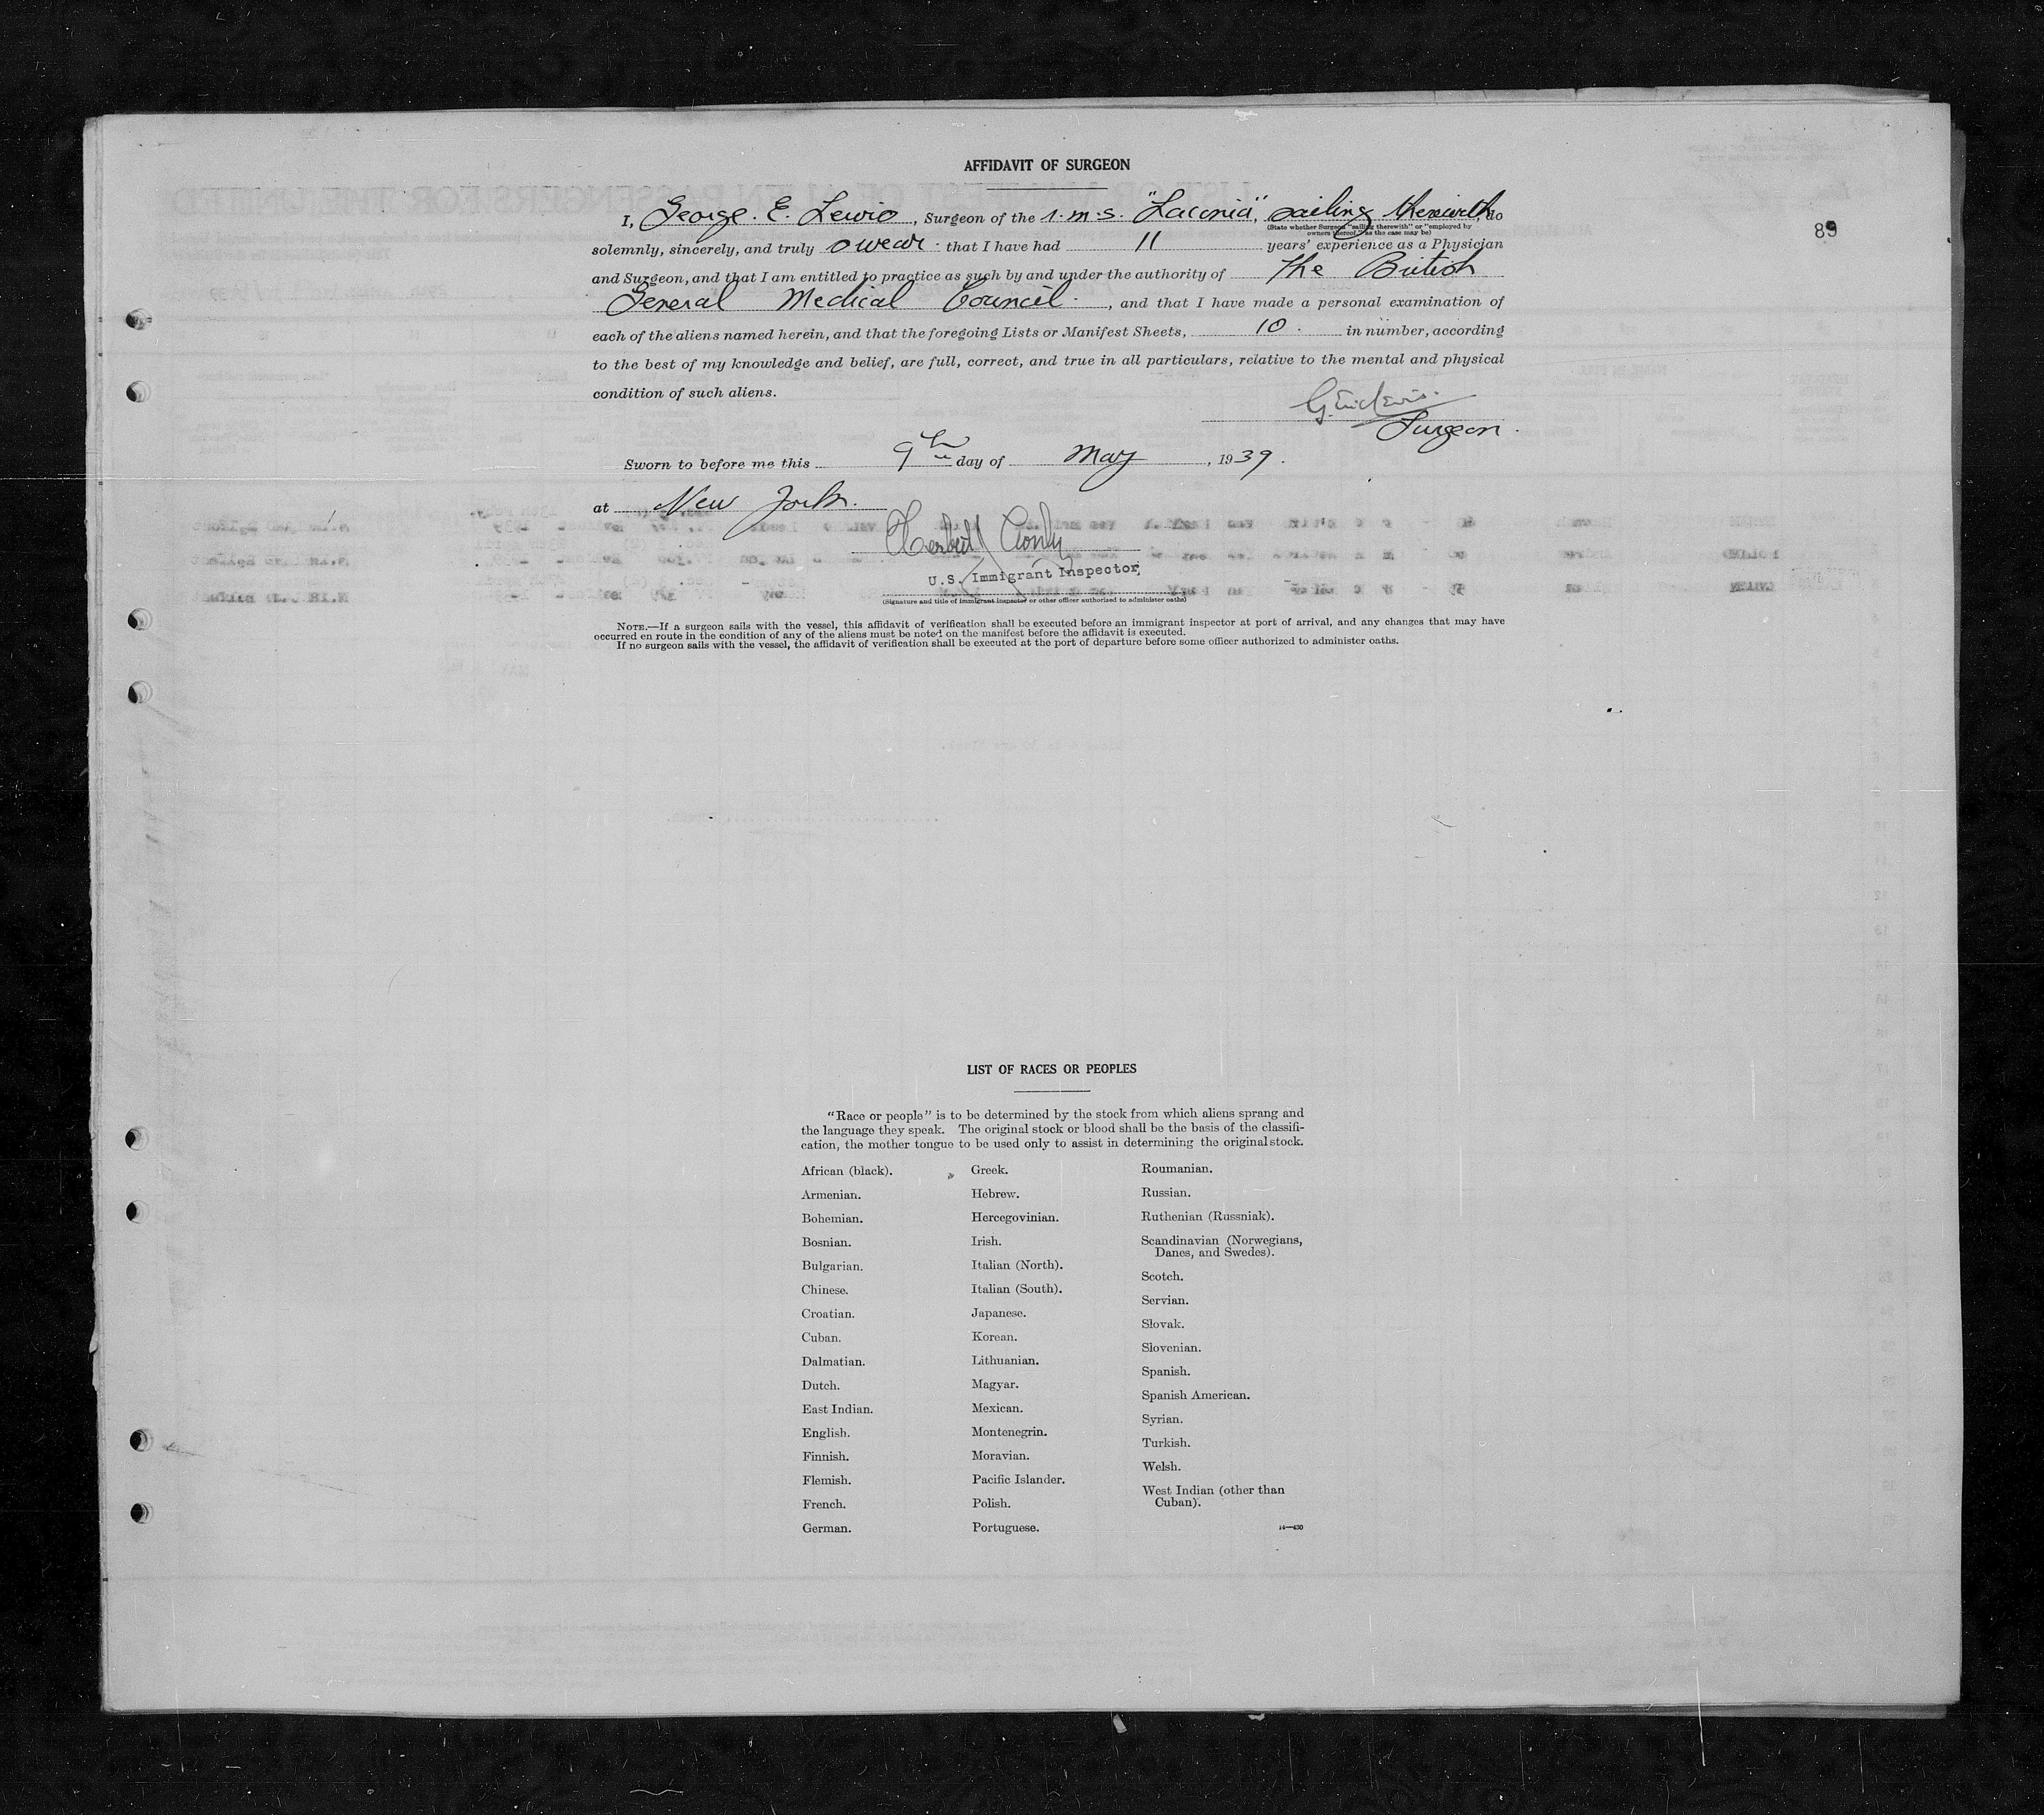 AFFIDAVIT OF SURGEON
89
I, George. E. Lewis, Surgeon of the s.m.s. "Laconia", sailing therewith, do
(State whether Surgeon "sailing therewith" or "employed by
owners thereof," as the case may be)
solemnly, sincerely, and truly swear that I have had 11 years' experience as a Physician
and Surgeon, and that I am entitled to practice as such by and under the authority of The British
General Medical Council, and that I have made a personal examination of
each of the aliens named herein, and that the foregoing Lists or Manifest Sheets, 10. in number, according
to the best of my knowledge and belief, are full, correct, and true in all particulars, relative to the mental and physical
condition of such aliens.
G. Eric Lewis.
Surgeon.
Sworn to before me this 9th day of May, 1939.
at New York.
U.S. Immigrant Inspector,
(Signature and title of immigrant inspector or other officer authorized to administer oaths)
NOTE.—If a surgeon sails with the vessel, this affidavit of verification shall be executed before an immigrant inspector at port of arrival, and any changes that may have
occurred en route in the condition of any of the aliens must be noted on the manifest before the affidavit is executed.
If no surgeon sails with the vessel, the affidavit of verification shall be executed at the port of departure before some officer authorized to administer oaths.
LIST OF RACES OR PEOPLES
"Race or people" is to be determined by the stock from which aliens sprang and
the language they speak. The original stock or blood shall be the basis of the classifi-
cation, the mother tongue to be used only to assist in determining the original stock.
African (black).
Armenian.
Bohemian.
Bosnian.
Bulgarian.
Chinese.
Croatian.
Cuban.
Dalmatian.
Dutch.
East Indian.
English.
Finnish.
Flemish.
French.
German.
Greek.
Hebrew.
Hercegovinian.
Irish.
Italian (North).
Italian (South).
Japanese.
Korean.
Lithuanian.
Magyar.
Mexican.
Montenegrin.
Moravian.
Pacific Islander.
Polish.
Portuguese.
Roumanian.
Russian.
Ruthenian (Russniak).
Scandinavian (Norwegians,
Danes, and Swedes).
Scotch.
Servian.
Slovak.
Slovenian.
Spanish.
Spanish American.
Syrian.
Turkish.
Welsh.
West Indian (other than
Cuban).
14—430